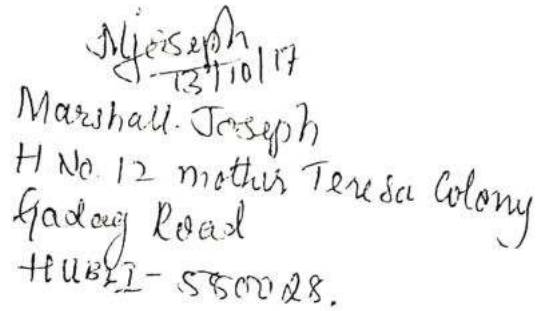 Mjoiseph
13/10/17
Marshall. Joseph
H No. 12 mother Teresa Colony
Gadag Road
HUBLI - 580028.